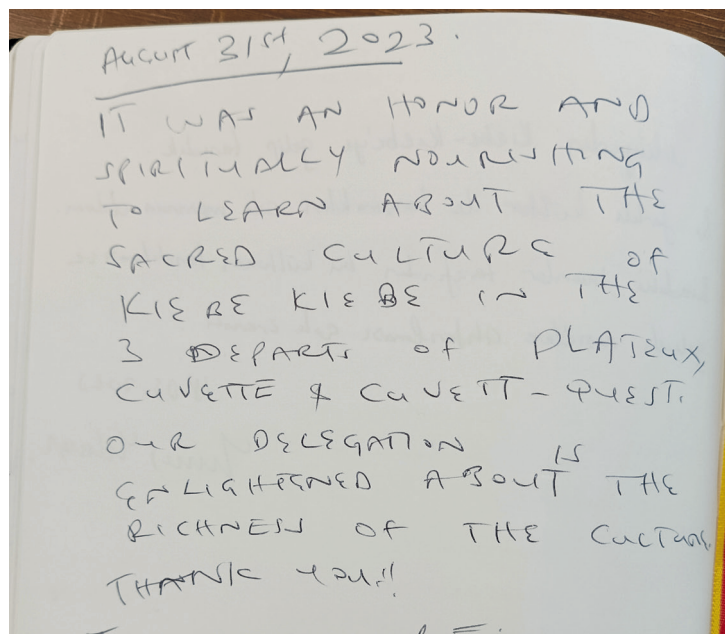 AUGUST 31st, 2023.
IT WAS AN HONOR AND
SPIRITUALLY NOURISHING
TO LEARN ABOUT THE
SACRED CULTURE OF
KIEBE KIEBE IN THE
3 DEPARTS OF PLATEUX,
CUVETTE & CUVETT-OUEST.
OUR DELEGATION IS
ENLIGHTENED ABOUT THE
RICHNESS OF THE CULTURE.
THANK YOU!!